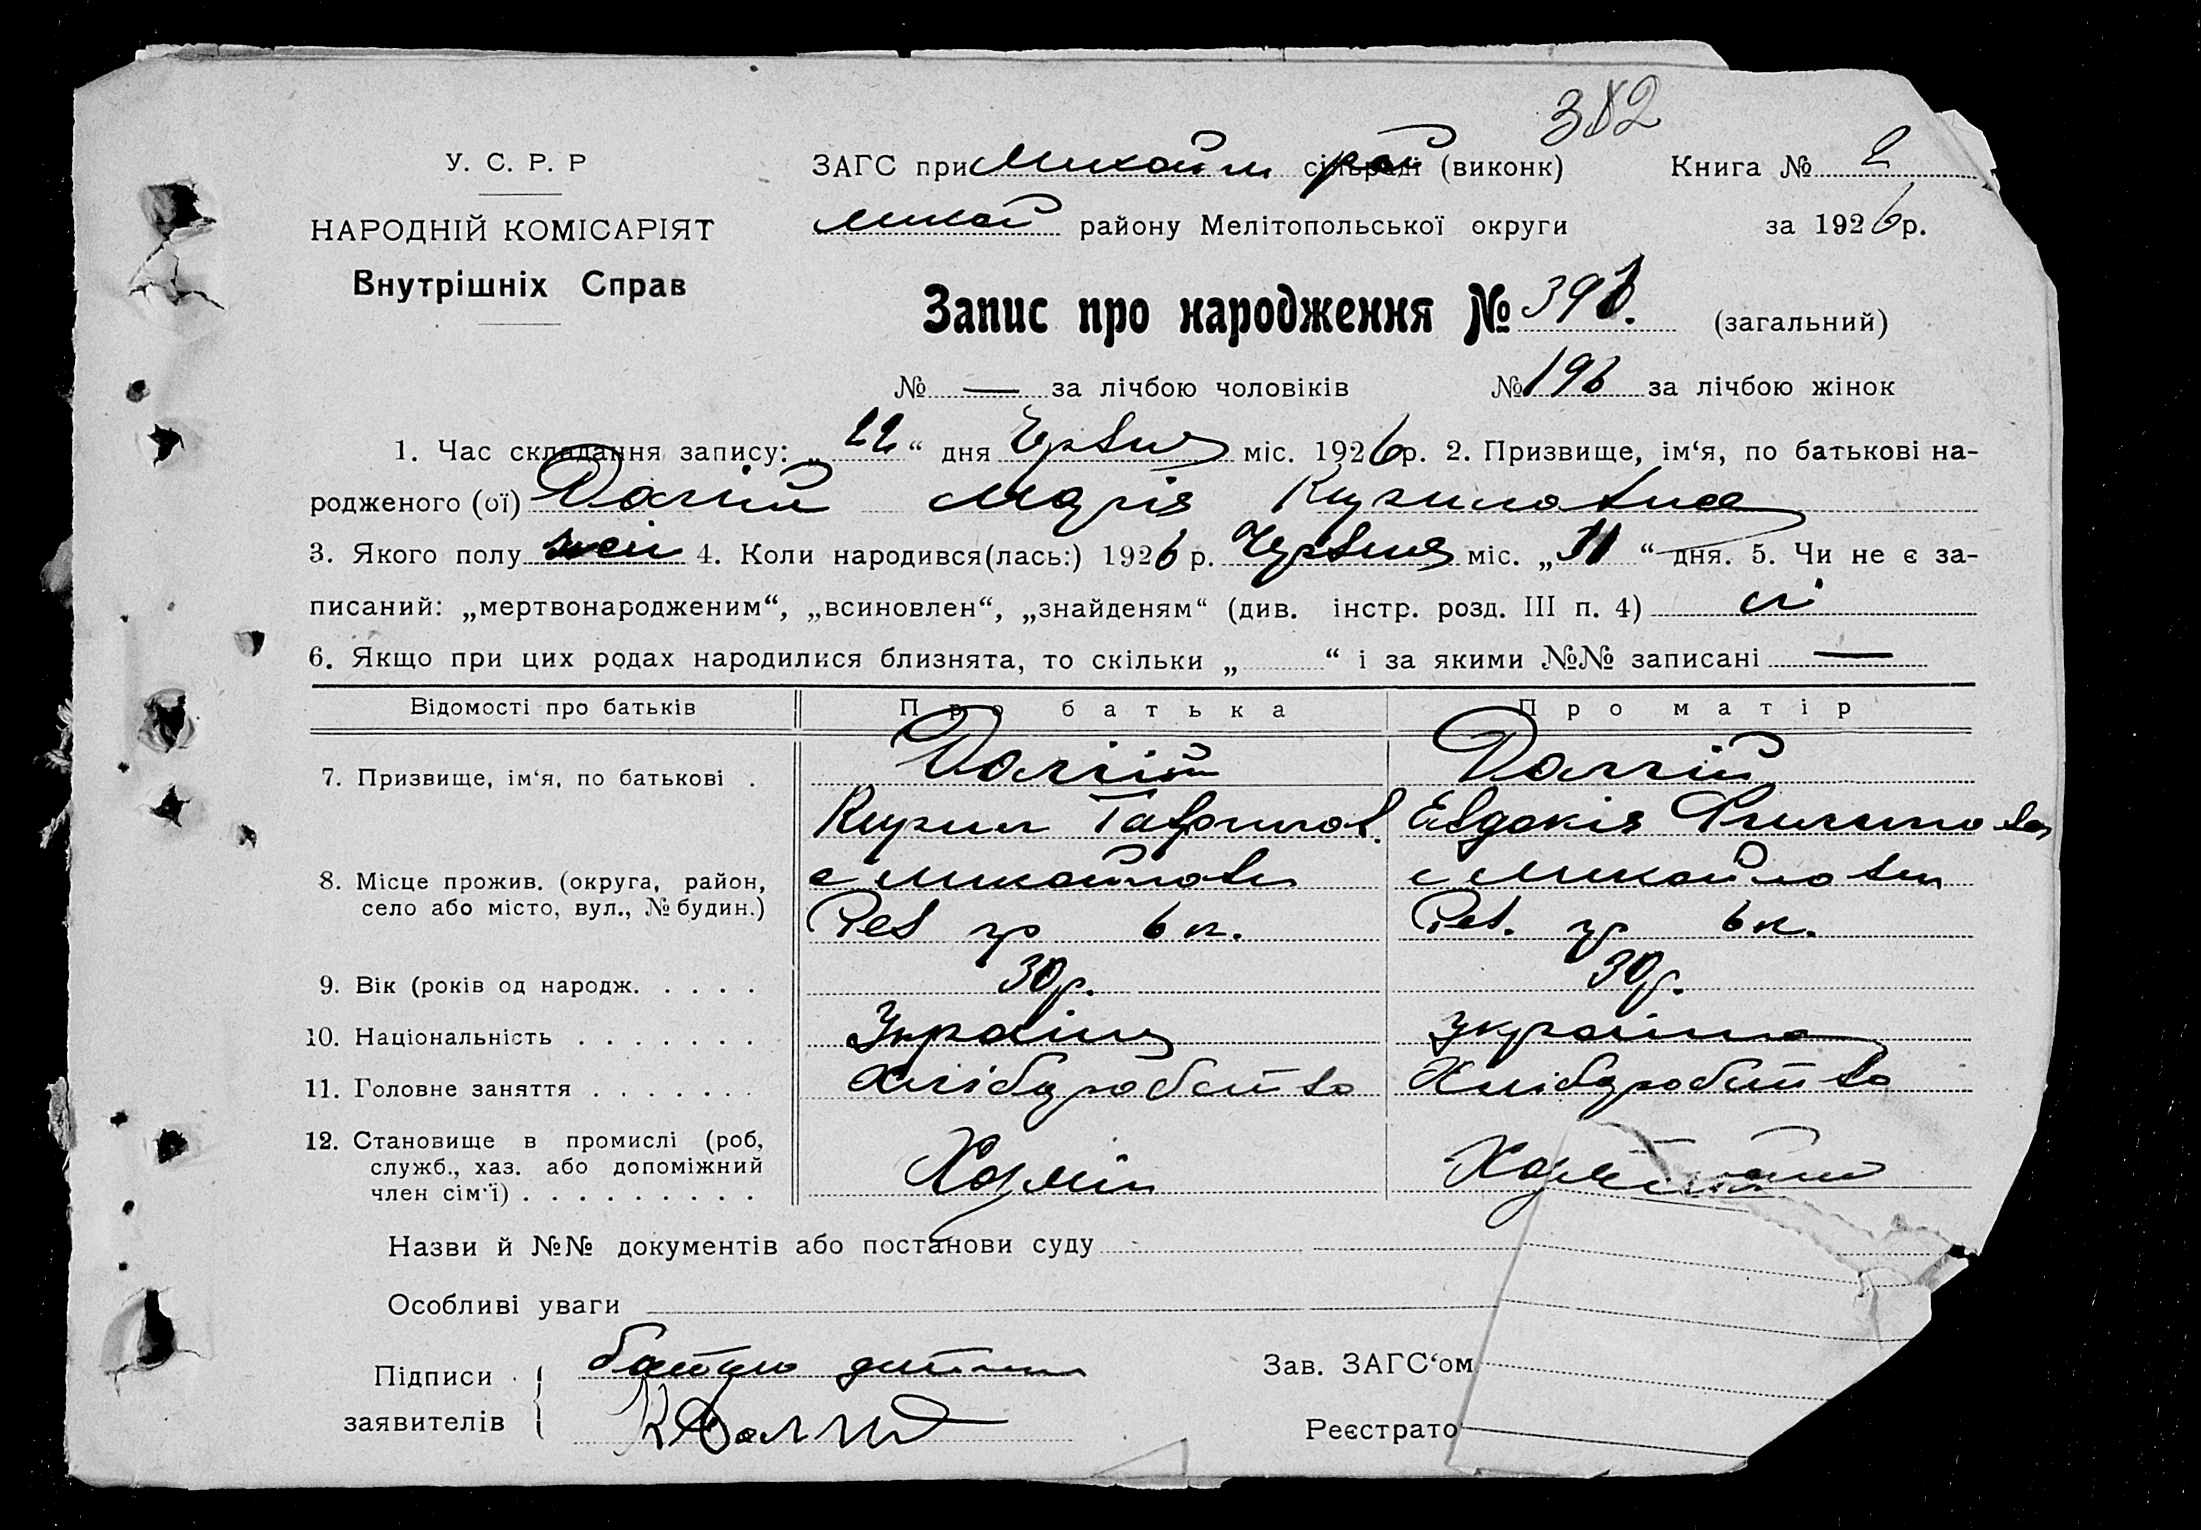 382
У. С. Р. Р
ЗАГС при Михайл сільраді рай (виконк) Книга № 2
НАРОДНІЙ КОМІСАРІЯТ
Михай району Мелітопольської округи за 1926 р.
Внутрішніх Справ
Запис про народження № 396. (загальний)
№ — за лічбою чоловіків № 196 за лічбою жінок
1. Час складання запису: „ 22 “ дня Червня міс. 1926 р. 2. Призвище, ім‘я, по батькові на-
родженого (ої) Марія Кирилович
3. Якого полу жін 4. Коли народився(лась:) 1926 р. Червня міс. „ 11 “ дня. 5. Чи не є за-
писаний: „мертвонародженим“, „всиновлен“, „знайденям“ (див. інстр. розд. III п. 4) ні
6. Якщо при цих родах народилися близнята, то скільки „ “ і за якими №№ записані —
Відомості про батьків Про батька Про матір
7. Призвище, ім‘я, по батькові . Долгій Долгій
Кирил Гаврилов. Евдокія Филипова
8. Місце прожив. (округа, район, с Михайловки с Михайловки
село або місто, вул., № будин.) Рев 6 к. Рев. 6 к.
9. Вік (років од народж. . . . . 30 р. 30 р.
10. Національність . . . . . . . Українц українка
11. Головне заняття . . . . . . . Хліборобство Хліборобство
12. Становище в промислі (роб,
служб., хаз. або допоміжний Хазяїн
член сім‘ї) . . . . . . . . .
Назви й №№ документів або постанови суду
Особливі уваги
Підписи батько дитини Зав. ЗАГС‘ом
заявителів К Долгий Реєстрато